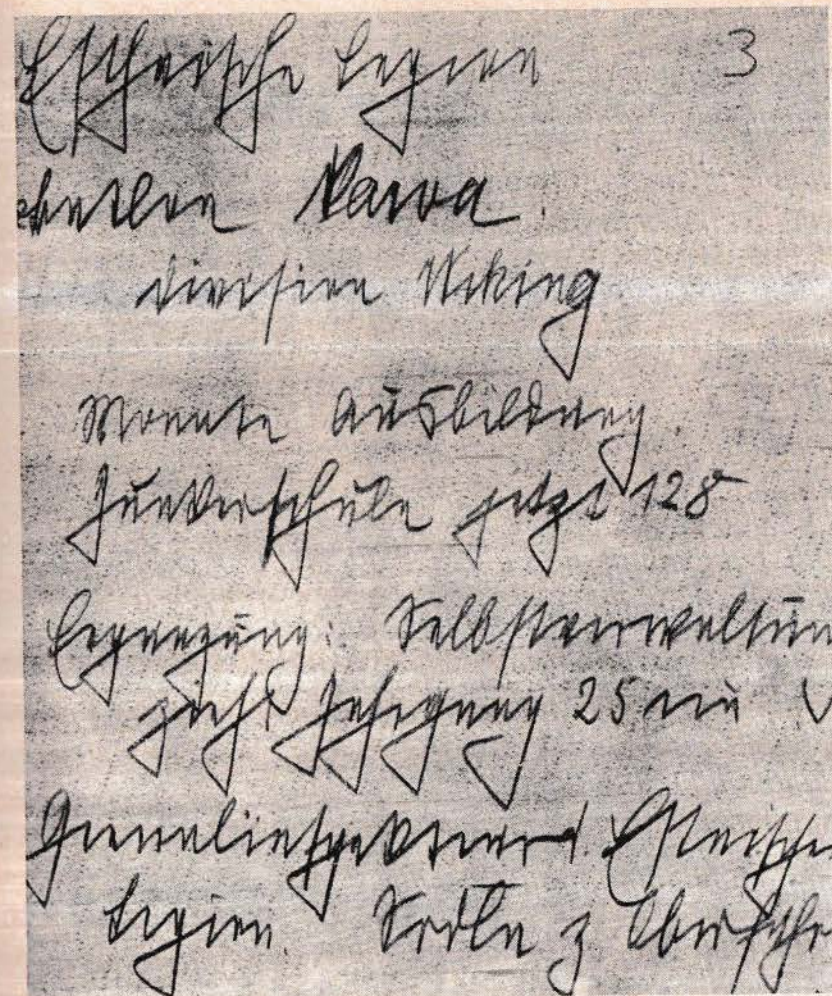 Esthnische Legion 3
Narva
Division Wiking
Monate Ausbildung.
Junkerschule jetzt 128
Selbstverwaltun
zieht Jahrgang 25 ein
Generalinspekteur d. Estnische
Legion. z Oberführ